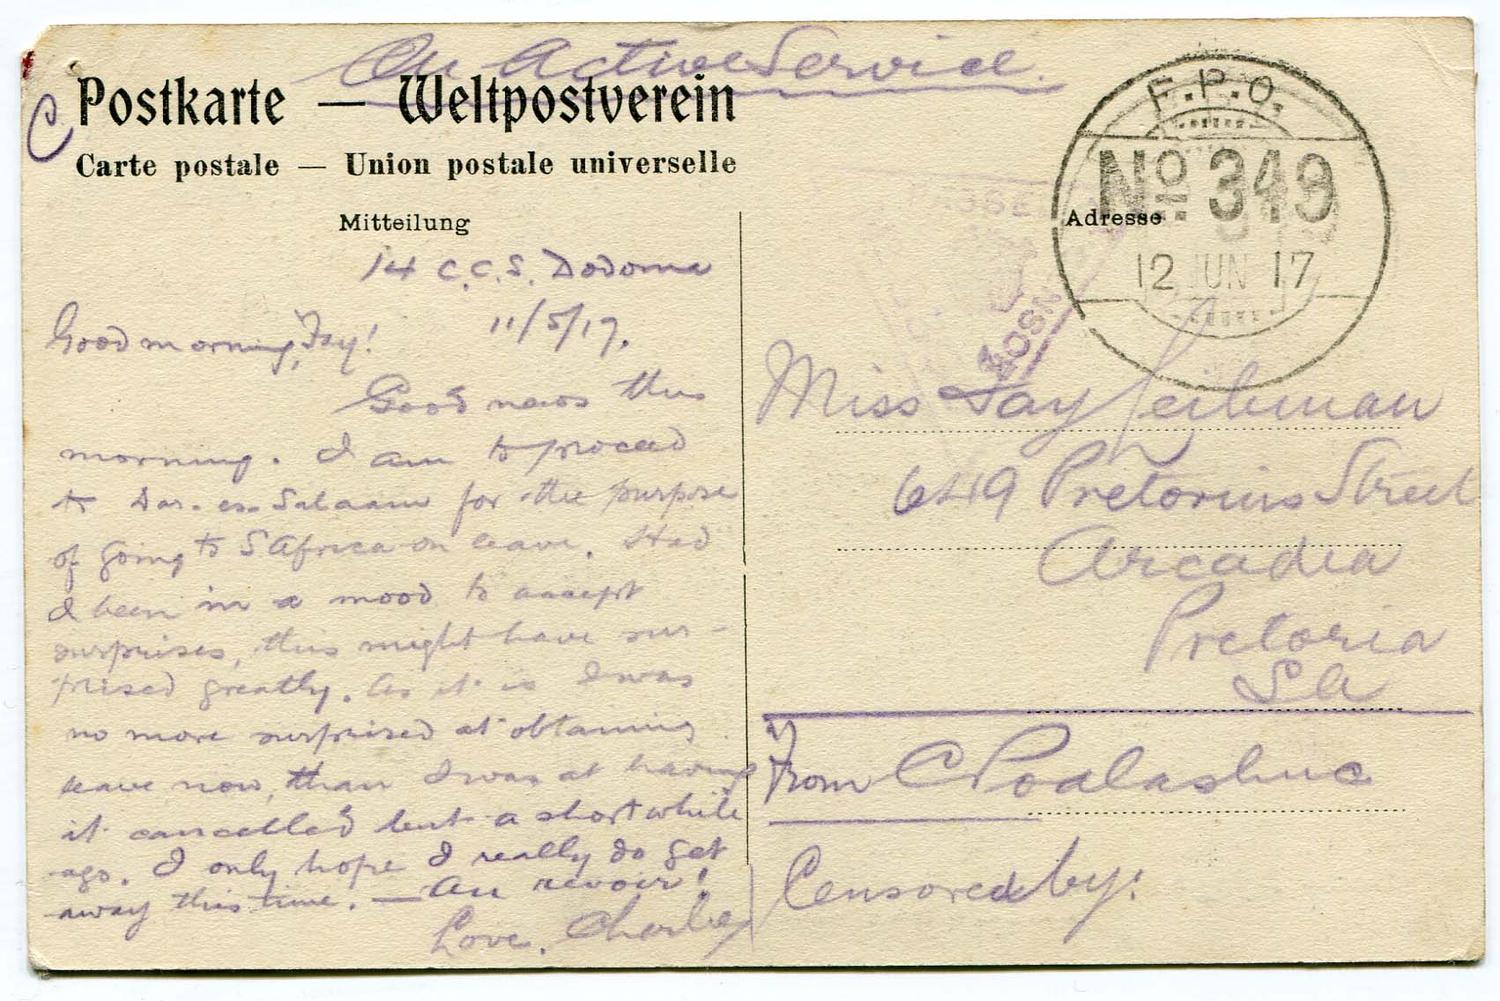 On Active Service.
C
Postkarte — Weltpostverein
Carte postale — Union postale universelle
Mitteilung
14 C.C.S. Dodoma
11/5/17.
Good morning, Fay!
Good news this
morning. I am to proceed
to Dar-es-Salaam for the purpose
of going to S Africa on leave. Had
I been in a mood to accept
surprises, this might have sur-
prised greatly. As it is I was
no more surprised at obtaining
leave now, than I was at having
it cancelled but a short while
ago. I only hope I really do get
away this time. — Au revoir!
Love, Charley
F.P.O.
No 349
12 JUN 17
Adresse
Miss Fay Leibman
649 Pretorius Street
Arcadia
Pretoria
SA
From C Poalashuc
Censored by: